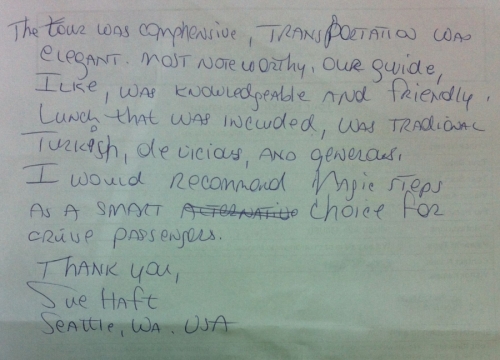 The tour was comphensive, TRANSPORTATION WAS
elegant. most note worthy, our guide,
Ilke, was knowledgeable and friendly.
Lunch that was included, was tradional
Turkish, delicious, and generous.
I would recommand Magic Steps
as a smart choice for
cruise passengers.
Thank you,
Sue Haft
Seattle, WA. USA